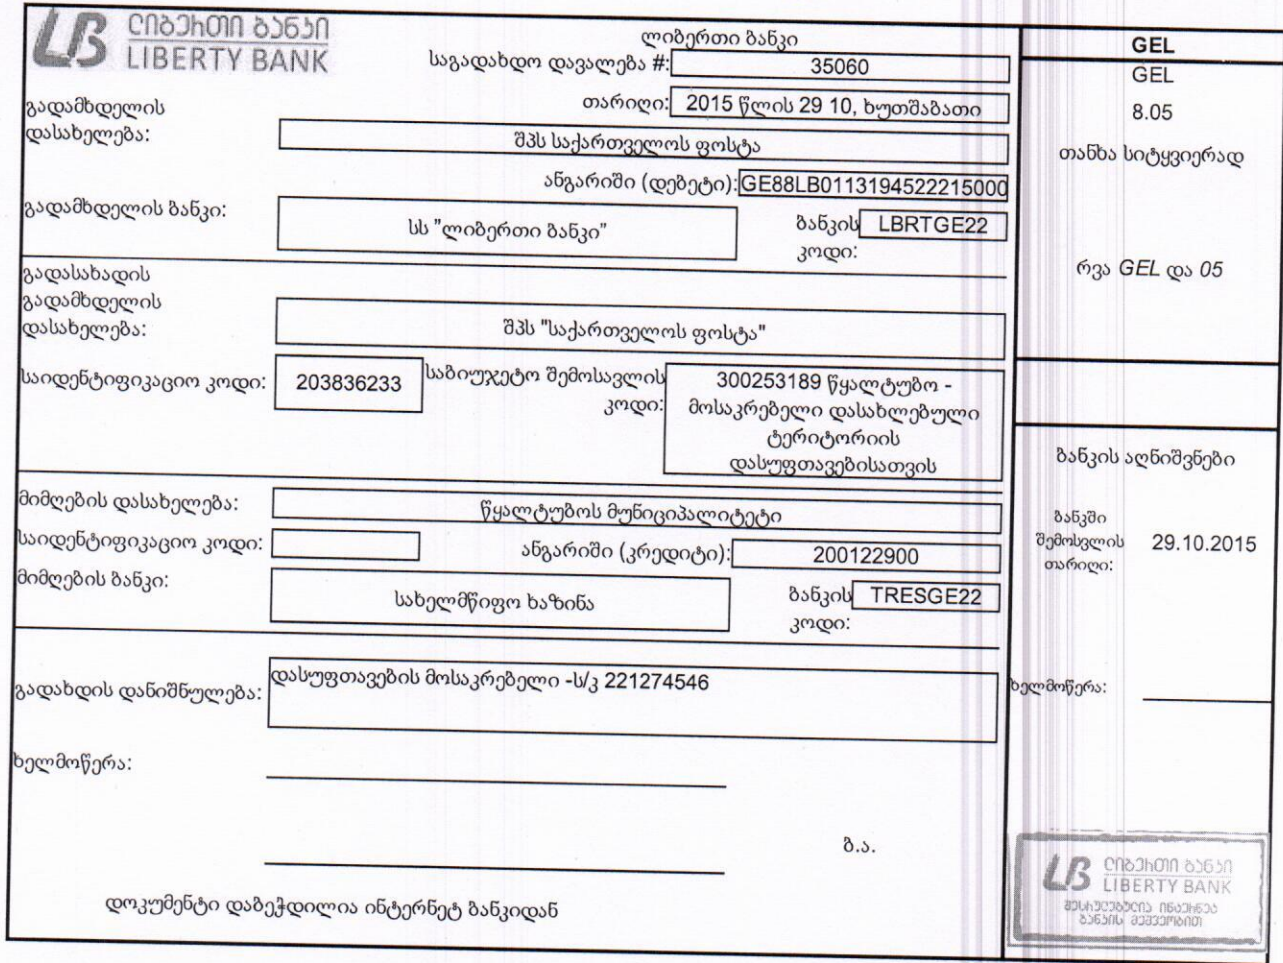 ლიბერთი ბანკი
LIBERTY BANK
ლიბერთი ბანკი
საგადახდო დავალება #: 35060
თარიღი: 2015 წლის 29 10, ხუთშაბათი
გადამხდელის
დასახელება: შპს საქართველოს ფოსტა
ანგარიში (დებეტი): GE88LB0113194522215000
გადამხდელის ბანკი: სს "ლიბერთი ბანკი" ბანკის LBRTGE22
კოდი:
გადასახადის
გადამხდელის
დასახელება: შპს "საქართველოს ფოსტა"
საიდენტიფიკაციო კოდი: 203836233 საბიუჯეტო შემოსავლის
კოდი:
300253189 წყალტუბო -
მოსაკრებელი დასახლებული
ტერიტორიის
დასუფთავებისათვის
მიმღების დასახელება: წყალტუბოს მუნიციპალიტეტი
საიდენტიფიკაციო კოდი: ანგარიში (კრედიტი): 200122900
მიმღების ბანკი: სახელმწიფო ხაზინა ბანკის TRESGE22
კოდი:
გადახდის დანიშნულება: დასუფთავების მოსაკრებელი -ს/კ 221274546
ხელმოწერა:
ბ.ა.
დოკუმენტი დაბეჭდილია ინტერნეტ ბანკიდან
GEL
GEL
8.05
თანხა სიტყვიერად
რვა GEL და 05
ბანკის აღნიშვნები
ბანკში
შემოსვლის 29.10.2015
თარიღი:
ხელმოწერა:
ლიბერთი ბანკი
LIBERTY BANK
შესრულებულია ინტერნეტ
ბანკის მეშვეობით